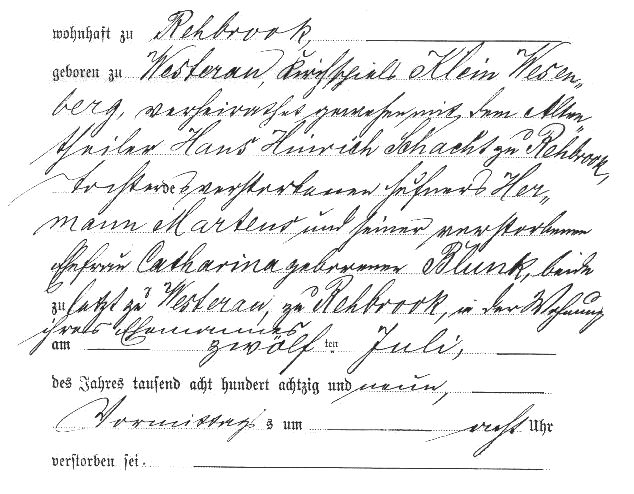 wohnhaft zu Rehbrook,
geboren zu Westerau, Kirchspiels Klein Wesen-
berg, verheirathet gewesen mit dem Alten
theiler Hans Hinrich Schacht zu Rehbrook,
Tochter des verstorbenen Hufners Her-
mann Martens und seiner verstorbenen
Ehefrau Catharina geborener Blunk, beide
zuletzt zu Westerau, zu Rehbrook, in der Wohnung
ihres Ehemannes
am zwölf ten Juli,
des Jahres tausend acht hundert achtzig und neun,
Vormittag s um acht Uhr
verstorben sei.